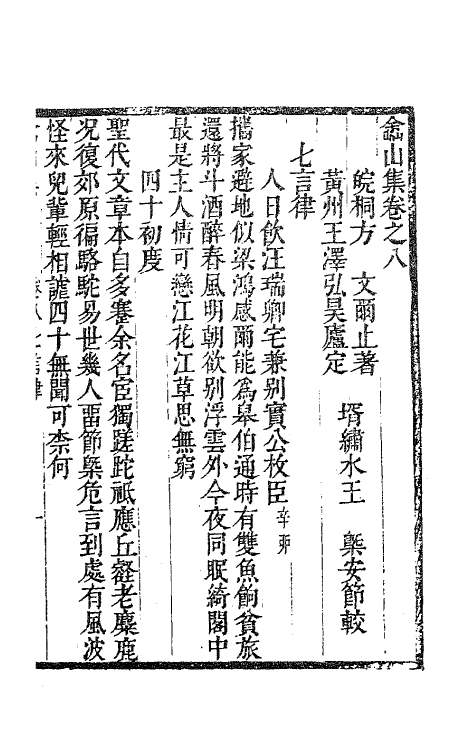 嵞山集卷之八
皖桐方　文爾止著　壻繡水王　槩安節較
黃州王澤弘昊廬定
七言律
人日飲汪瑞卿宅兼別實公枚臣辛卯
攜家避地似梁鴻感爾能為皋伯通時有雙魚餉貧旅
還將斗酒醉春風明朝欲別浮雲外今夜同眠綺閣中
最是主人情可戀江花江草思無窮
四十初度
聖代文章本自多蹇余名宦獨蹉跎祗應丘壑老麋鹿
况復郊原徧駱駝易世幾人畱節槩危言到處有風波
怪來兒輩輕相謔四十無聞可柰何